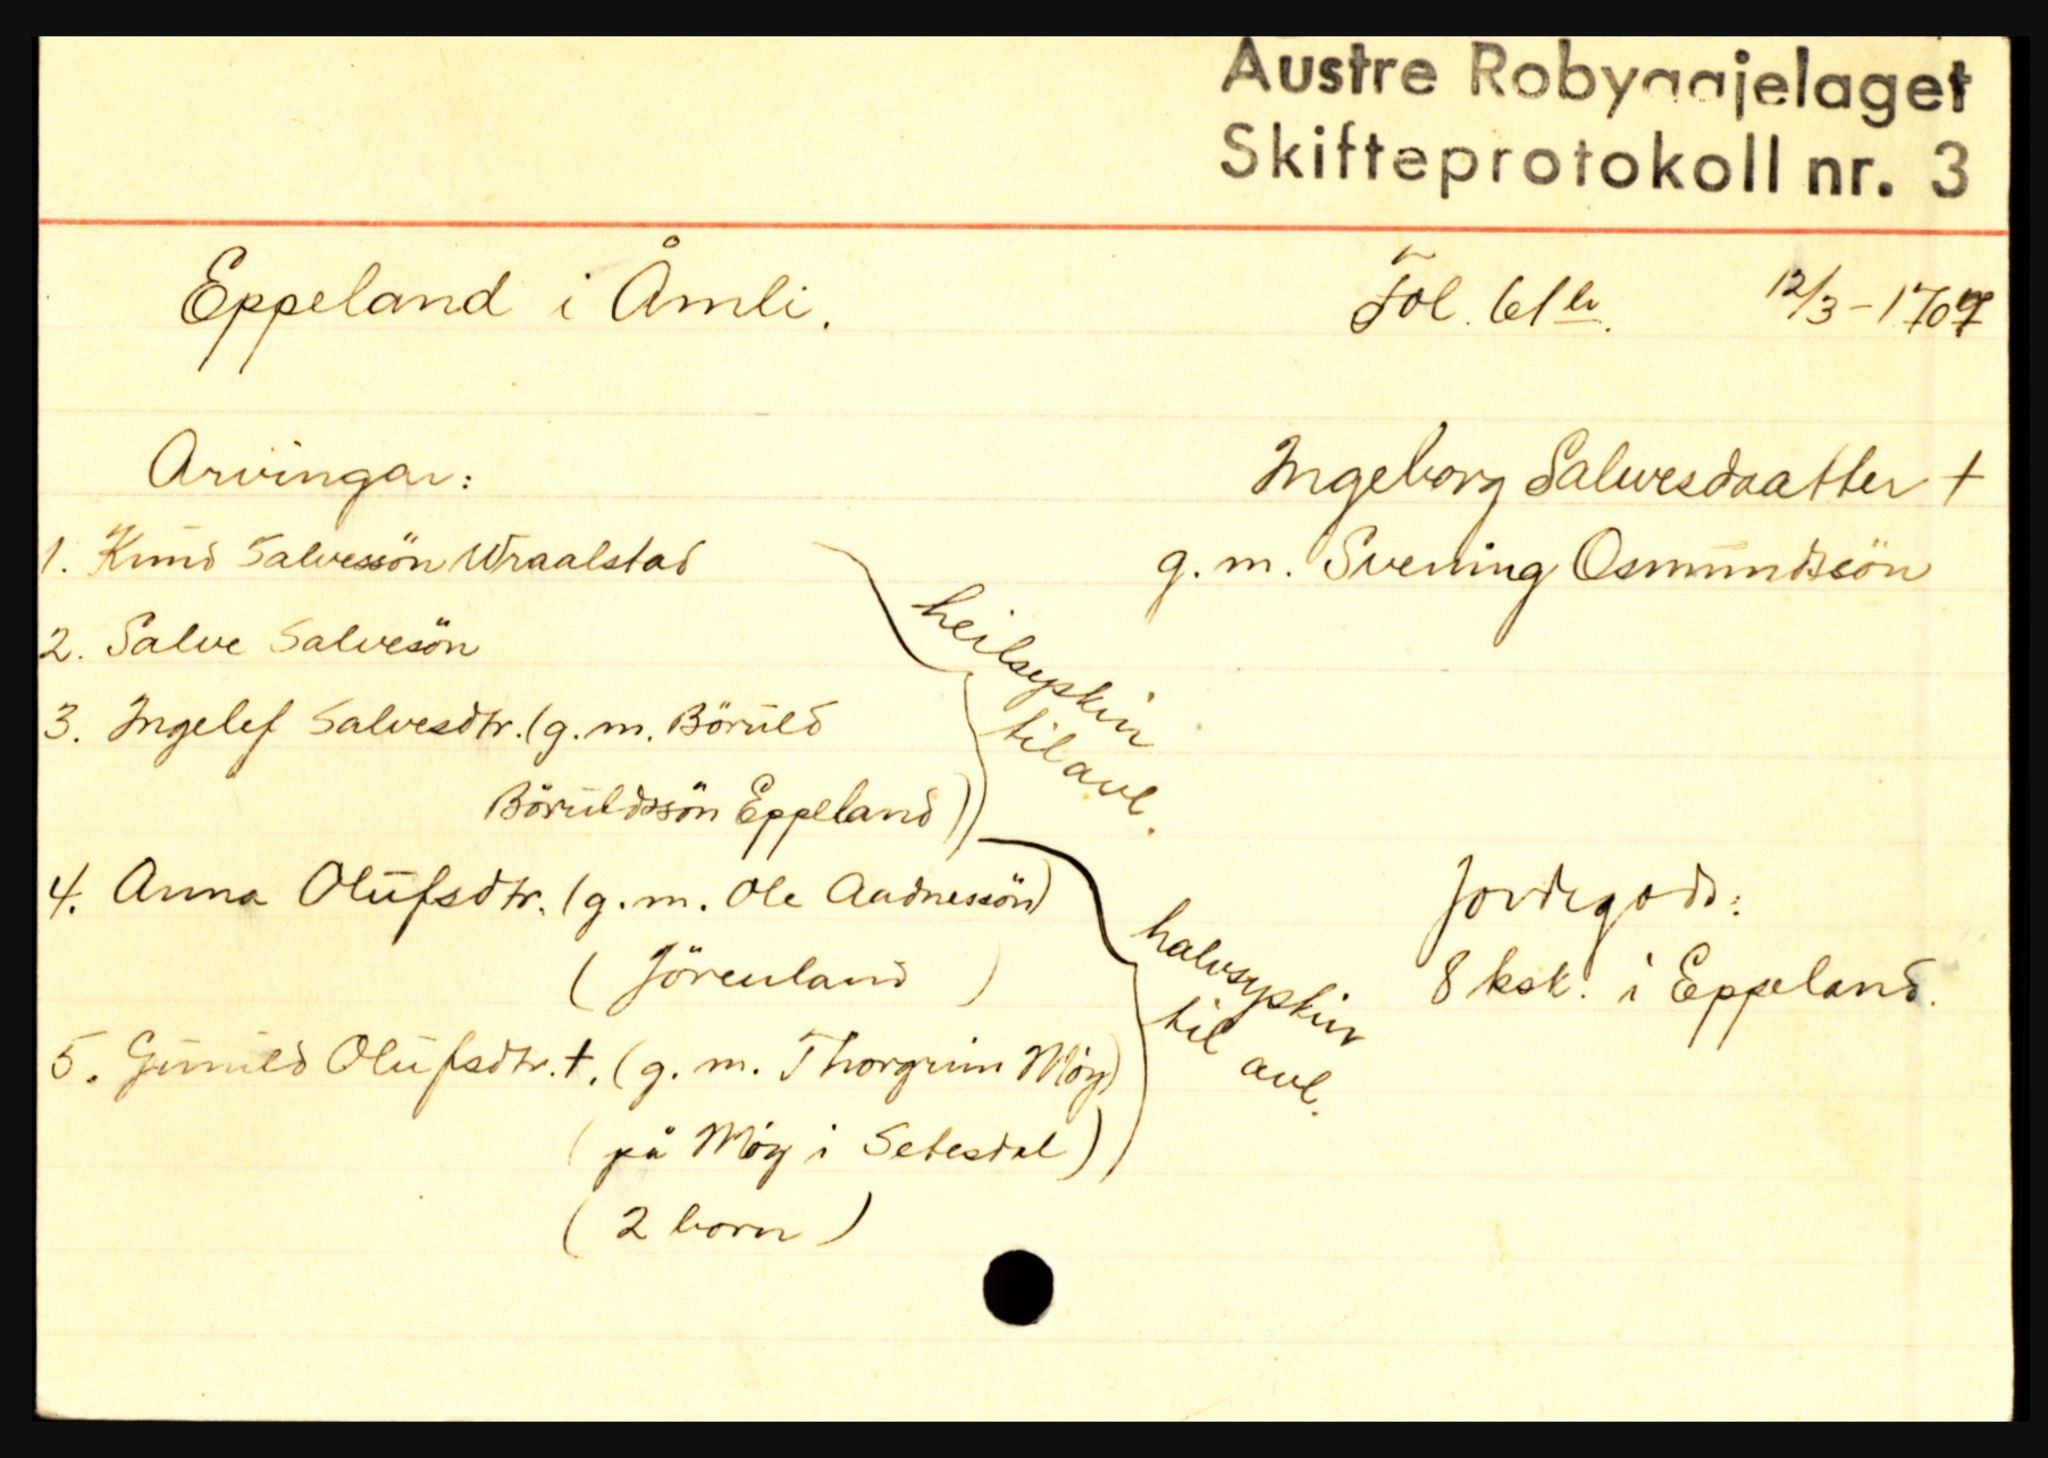 Austre Robyggjelaget
Skifteprotokoll nr. 3
Eppeland i Åmli.
Fol. 61 b. 12/3-1707
Arvingar:
Ingeborg Salvesdaatter †
g. m. Svening Osmundssön
1. Knud Salvessön Wraalstad
2. Salve Salvesön
3. Ingelef Salvesdtr. (g. m. Böruld
Böruldssön Eppeland)
heilsyskin
til avl.
4. Anna Olufsdtr. (g. m. Ole Aadnessön)
( Jörenland )
5. Gunuld Olufsdtr. †. (g. m. Thorgrim Möy)
( på Möy i Setesdal )
( 2 born )
halvsyskin
til avl.
Jordegods:
8 ksk. i Eppeland.